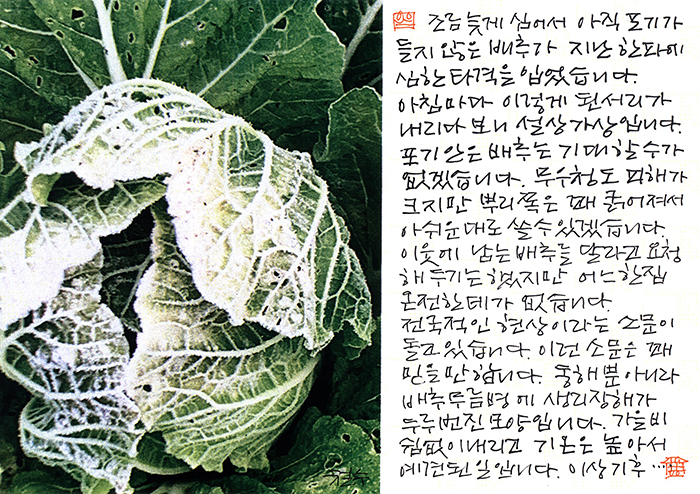 조금 늦게 심어서 아직 포기가
들지 않은 배추가 지난 한파에
심한 타격을 입었습니다.
아침마다 이렇게 된서리가
내리다 보니 설상가상입니다.
포기 안은 배추는 기대할수가
없겠습니다. 무우청도 피해가
크지만 뿌리쪽은 꽤 굵어져서
아쉬운대로 쓸수있겠습니다.
이웃에 남는배추를 달라고 요청
해 두기는 했지만 어느한집
온전한데가 없습니다.
전국적인 현상이라는 소문이
돌고있습니다. 이런 소문은 꽤
믿을만합니다. 동해뿐아니라
배추무름병에 생리장해가
두루번진 모양입니다. 가을비
쉼없이내리고 기온은 높아서
예견된 일입니다. 이상기후 …